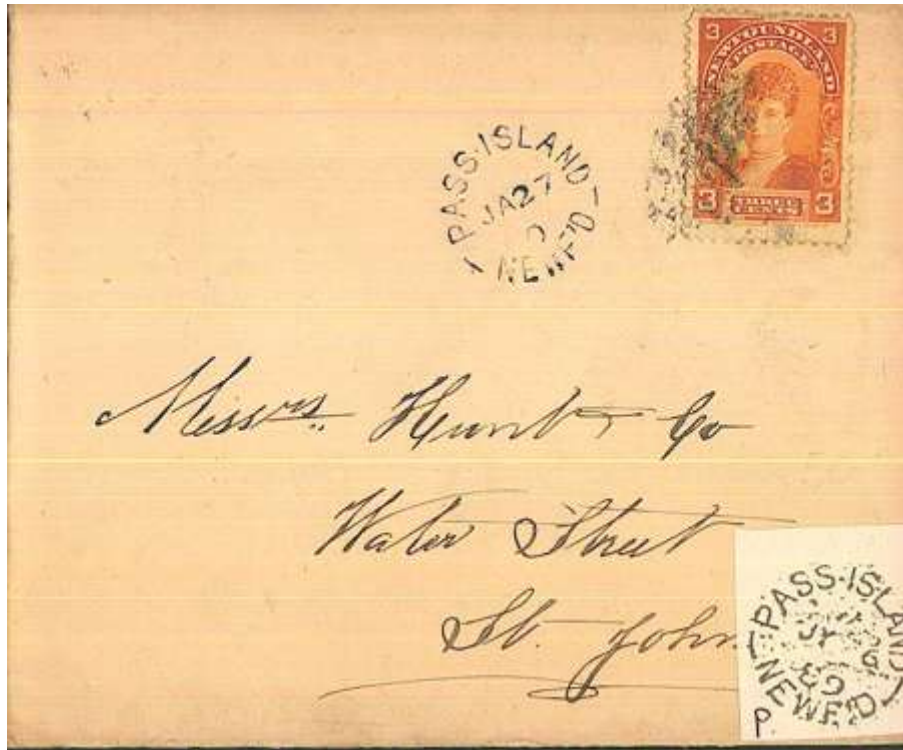 3 NEWFOUNDLAND 3
POSTAGE
3 THREE 3
CENTS
PASS·ISLAND
JA 27
0
NEWF'D
Messrs. Hunt & Co
Water Street
St. John
PASS·ISLAND
JY
NEWF'D
P.